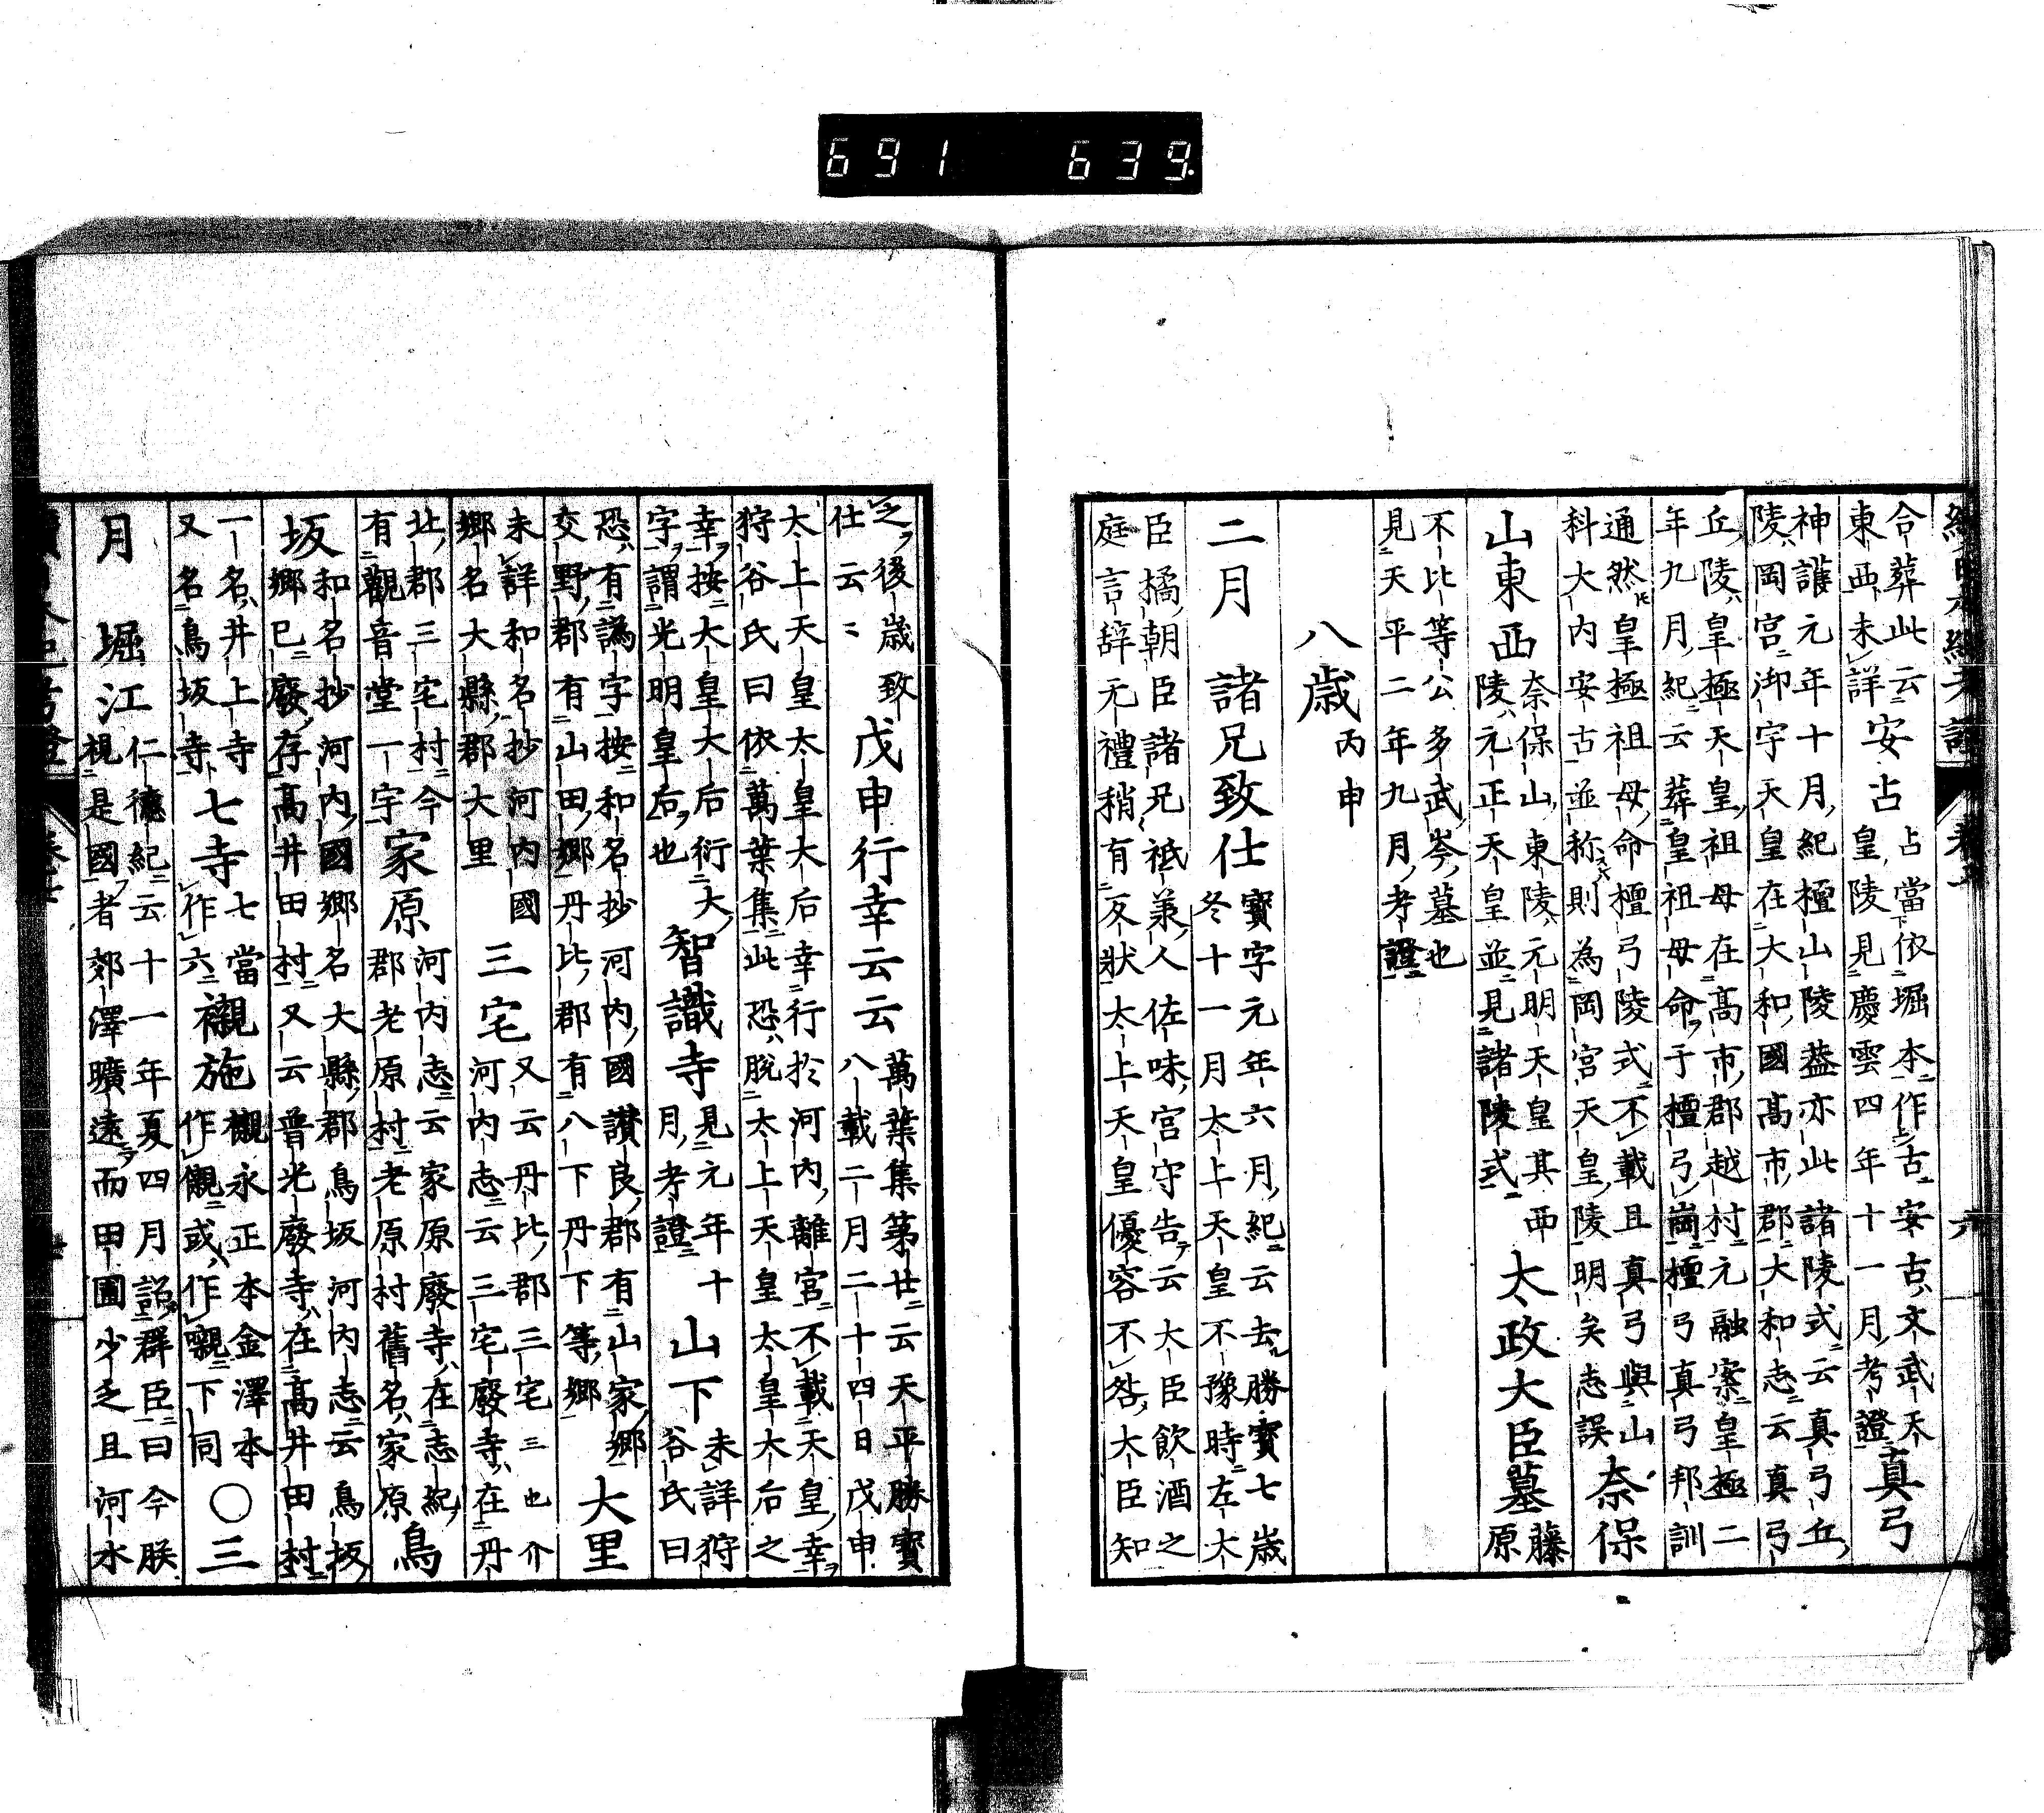 691 639.
合葬此云云安占占當依堀本作古安古文武天
東西未詳皇陵見慶雲四年十一月考證真弓
神護元年十月紀檀山陵蓋亦此諸陵式云真弓丘
陵岡宮御宇天皇在大和國高市郡大和志云真弓
丘陵皇極天皇祖母在高市郡越村元融案皇極二
年九月紀云葬皇祖母命于檀弓崗檀弓真弓邦訓
通然皇極祖母命檀弓陵式不載且真弓與山
科大内安古並称則為岡宮天皇陵明矣志誤奈保
山東西奈保山東陵元明天皇其西
陵元正天皇並見諸陵式太政大臣墓藤原
不比等公多武岑墓也
見天平二年九月考證
八歳丙申
二月 諸兄致仕寶字元年六月紀云去勝寶七歳
冬十一月太上天皇不豫時左大
臣橘朝臣諸兄祗兼人佐味宮守告云大臣飲酒之
庭言辞无禮稍有反状太上天皇優容不咎大臣知
之後歳致
仕云云戊申行幸云云萬葉集第廿云天平勝寶
八載二月二十四日戊申
太上天皇太皇大后幸行於河内離宮不載天皇幸
狩谷氏曰依萬葉集此恐脱太上天皇太皇大后之
幸按大皇大后衍大
字謂光明皇后也智識寺見元年十
月考證山下未詳狩
谷氏曰
恐有譌字按和名抄河内國讃良郡有山家郷
交野郡有山田郷丹比郡有八下丹下等郷大里
未詳和名抄河内國
郷名大縣郡大里三宅又云丹比郡三宅三也介
河内志云三宅廢寺在丹
北郡三宅村今
有觀音堂一宇家原河内志云家原廢寺在志紀
郡老原村老原村舊名家原鳥
坂和名抄河内國郷名大縣郡鳥坂河内志云鳥坂
郷已廢存髙井田村又云普光廢寺在髙井田村
一名井上寺
又名鳥坂寺七寺七當
作六襯施襯永正本金澤本
作儭或作嚫下同〇三
月 堀江仁德紀云十一年夏四月詔群臣曰今朕
視是國者郊澤曠遠而田圃少乏且河水